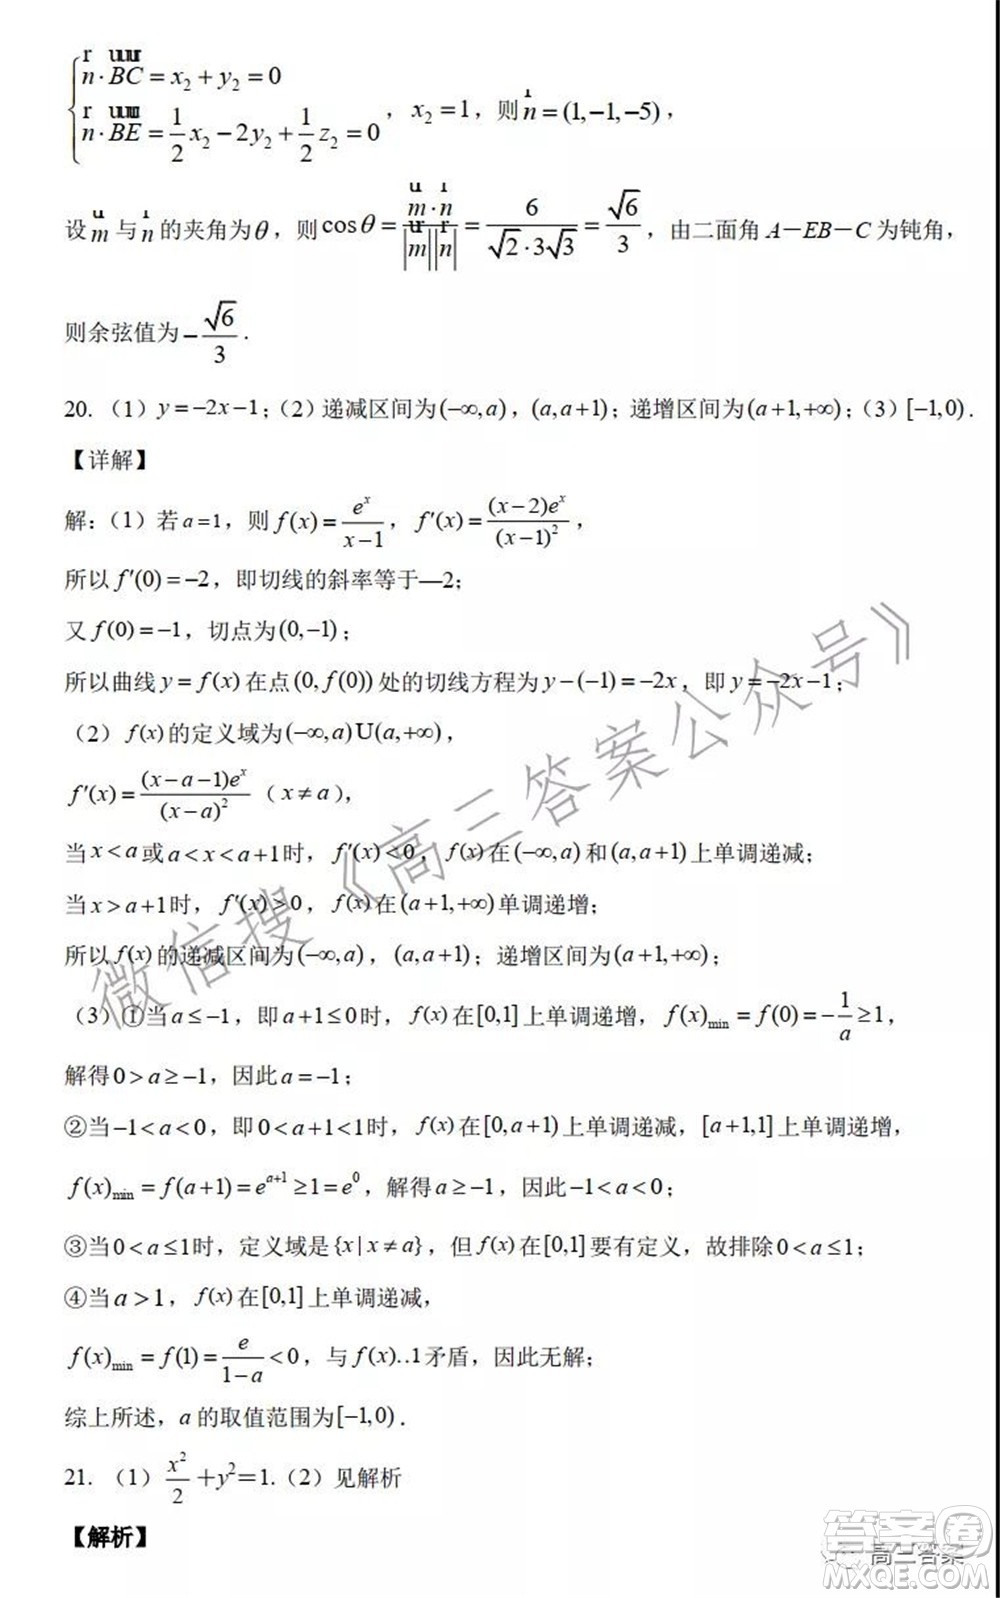 { n⃗·BC⃗ = x₂ + y₂ = 0
n⃗·BE⃗ = 1/2 x₂ − 2y₂ + 1/2 z₂ = 0 ，x₂ = 1，则 n⃗ = (1,−1,−5)，
设 m⃗ 与 n⃗ 的夹角为θ，则 cosθ = m⃗·n⃗ / |m⃗||n⃗| = 6/(√2·3√3) = √6/3，由二面角 A－EB－C 为钝角，
则余弦值为 −√6/3．
20.（1）y = −2x−1；（2）递减区间为(−∞,a)，(a,a+1)；递增区间为(a+1,+∞)；（3）[−1,0)．
【详解】
解：（1）若 a = 1，则 f(x) = eˣ/(x−1)，f′(x) = (x−2)eˣ/(x−1)²，
所以 f′(0) = −2，即切线的斜率等于—2；
又 f(0) = −1，切点为(0,−1)；
所以曲线 y = f(x) 在点(0, f(0)) 处的切线方程为 y−(−1) = −2x，即 y = −2x−1；
（2）f(x) 的定义域为(−∞,a)U(a,+∞)，
f′(x) = (x−a−1)eˣ/(x−a)²（x ≠ a），
当 x < a 或 a < x < a+1 时，f′(x) < 0，f(x) 在(−∞,a) 和(a,a+1) 上单调递减；
当 x > a+1 时，f′(x) > 0，f(x) 在(a+1,+∞) 单调递增；
所以 f(x) 的递减区间为(−∞,a)，(a,a+1)；递增区间为(a+1,+∞)；
（3）①当 a ≤ −1，即 a+1 ≤ 0 时，f(x) 在[0,1] 上单调递增，f(x)min = f(0) = −1/a ≥ 1，
解得 0 > a ≥ −1，因此 a = −1；
②当 −1 < a < 0，即 0 < a+1 < 1 时，f(x) 在[0,a+1) 上单调递减，[a+1,1] 上单调递增，
f(x)min = f(a+1) = eᵃ⁺¹ ≥ 1 = e⁰，解得 a ≥ −1，因此 −1 < a < 0；
③当 0 < a ≤ 1 时，定义域是{x | x ≠ a}，但 f(x) 在[0,1] 要有定义，故排除 0 < a ≤ 1；
④当 a > 1，f(x) 在[0,1] 上单调递减，
f(x)min = f(1) = e/(1−a) < 0，与 f(x)..1 矛盾，因此无解；
综上所述，a 的取值范围为[−1,0)．
21.（1）x²/2 +y²＝1.（2）见解析
【解析】
微信搜《高三答案公众号》
高三答案
答案圈
MXQE.COM